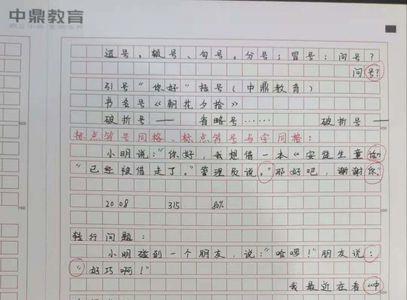 中鼎教育
逗号，顿号、句号。分号；冒号：问号？
问号？
引号“你好”括号（中鼎教育）
书名号《朝花夕拾》
破折号—— 省略号…… 破折号—
标点符号同格 标点符号与字同格：
小明说：“你好，我想借一本《安徒生童话
“已经被借走了。”管理员说。“那好吧，谢谢你。
2008 315
转行问题：
小明碰到一个朋友，说：“哈啰！”朋友说：
“好巧啊！”
我最近在看《中